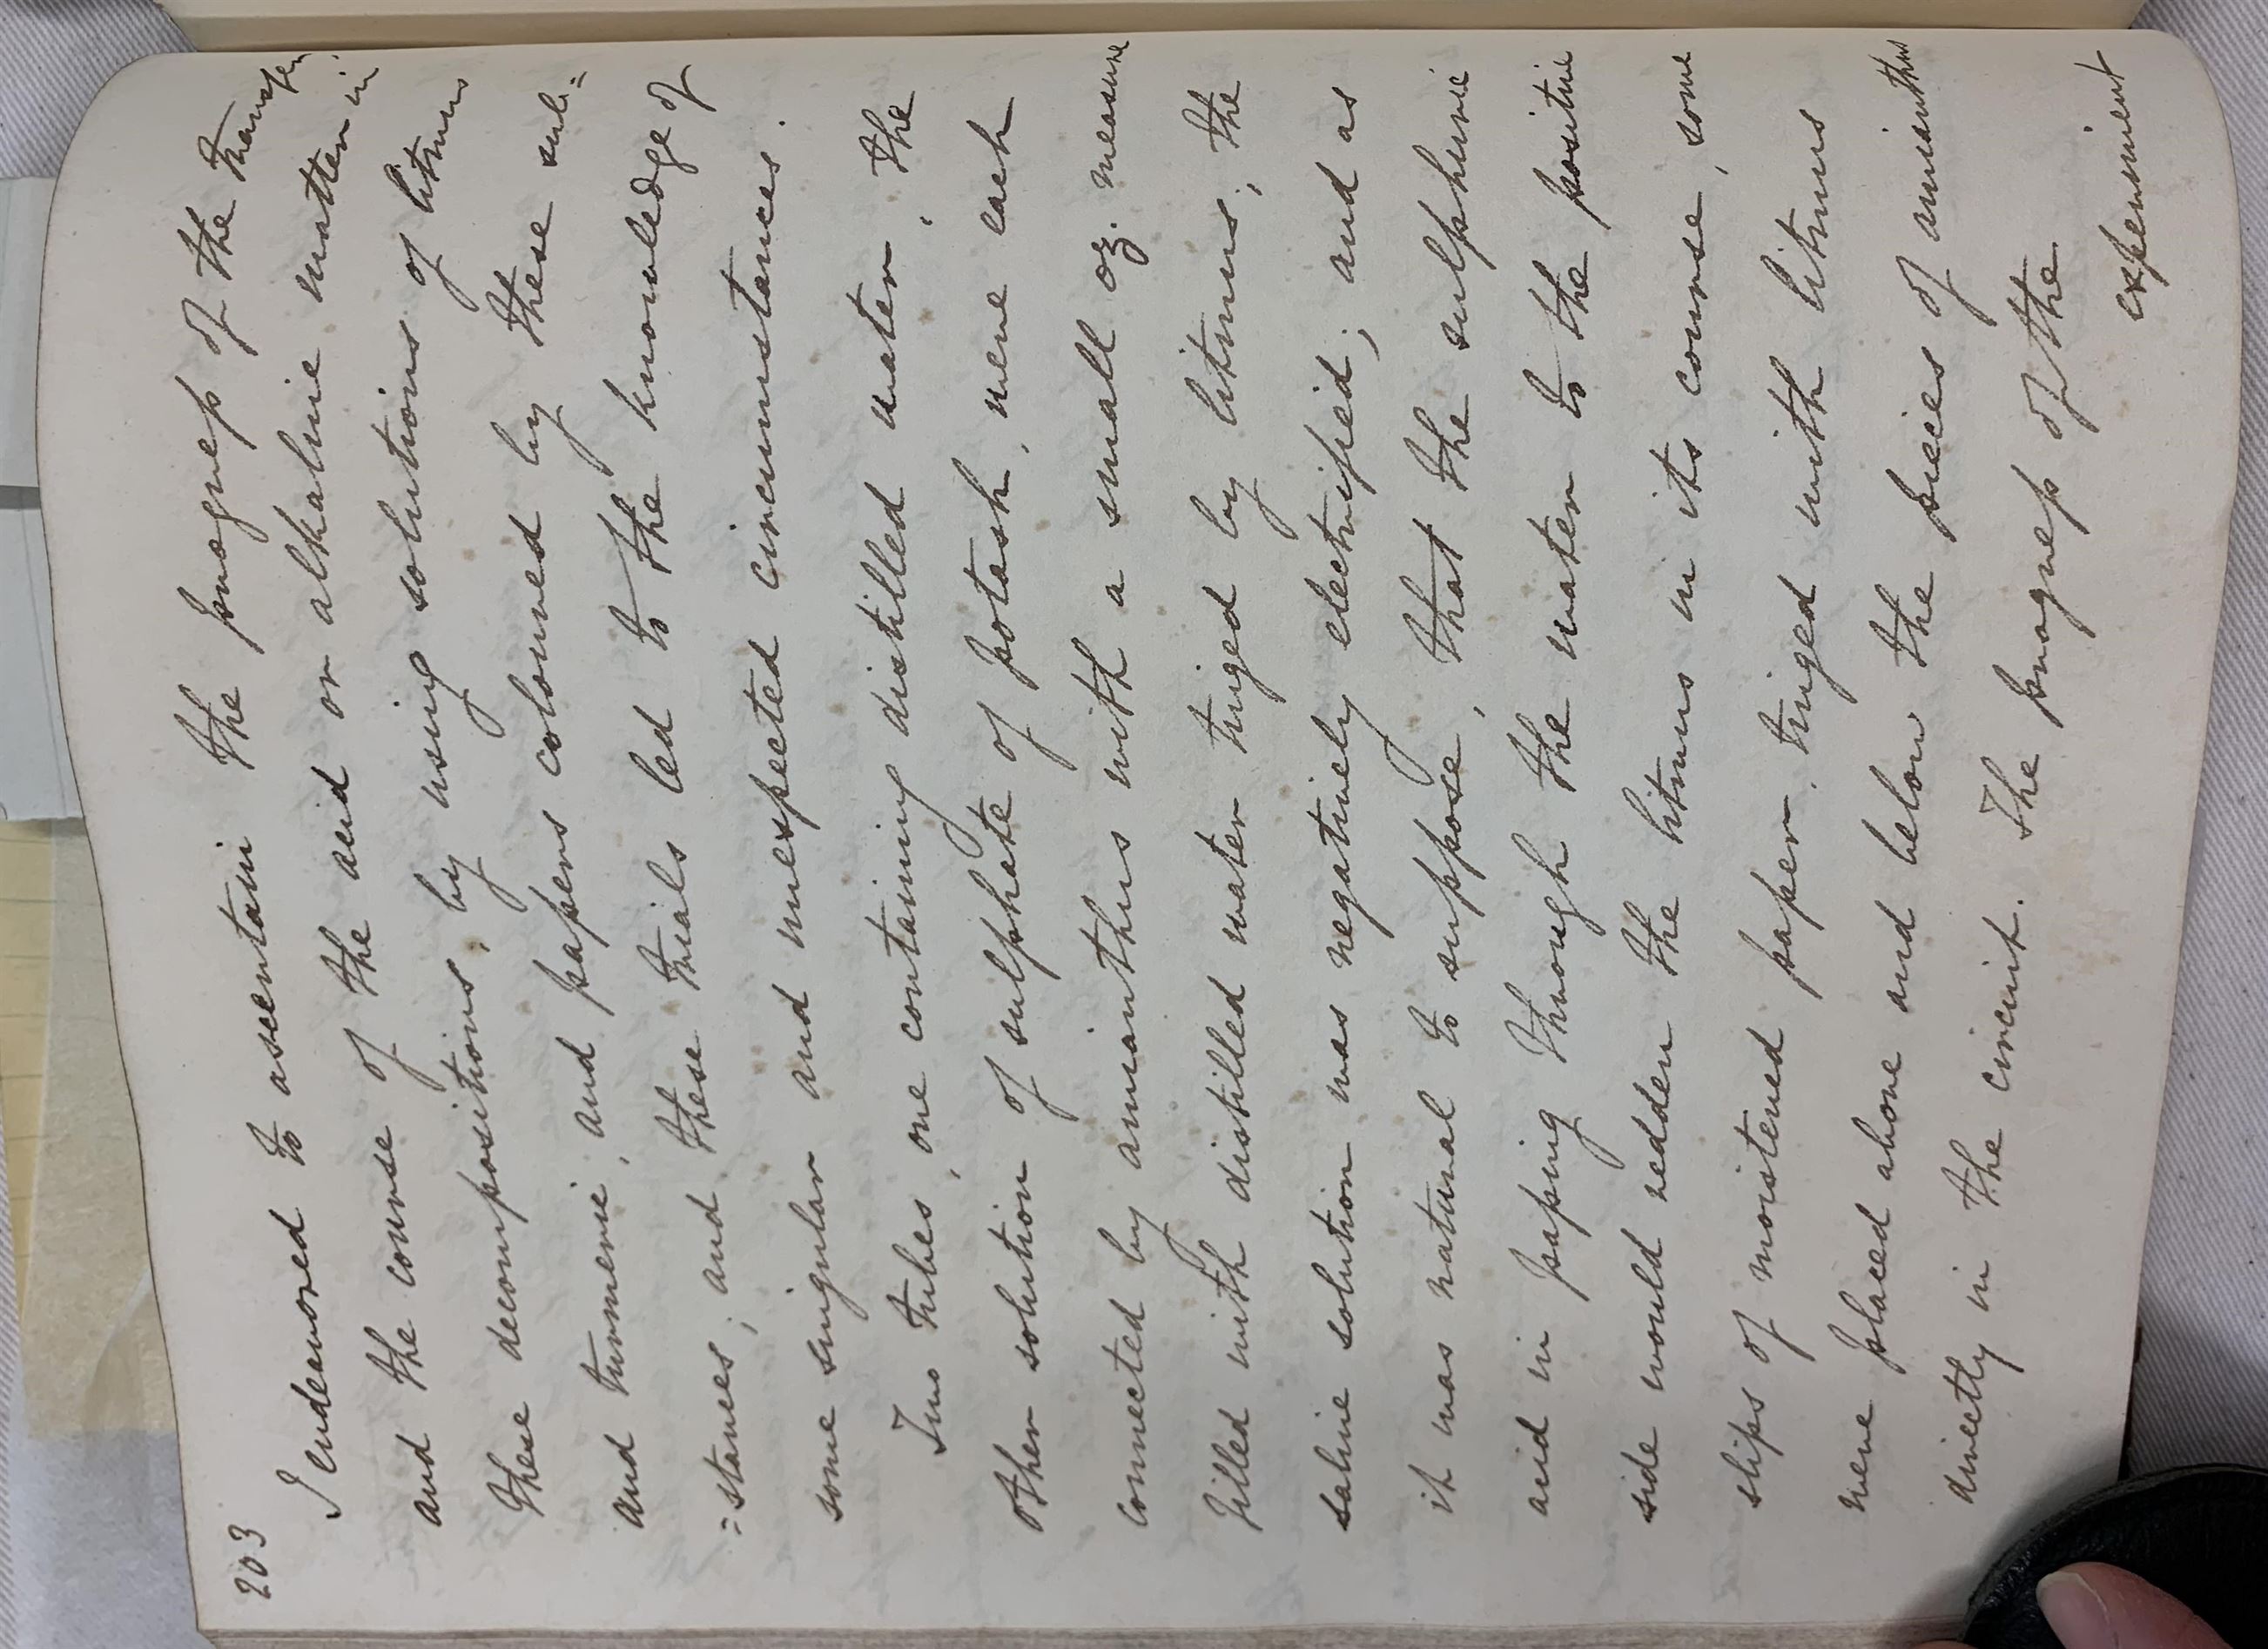 203
I endeavored to ascertain the progress of the transfer
and the course of the acid or alkaline matter in
these decompositions, by using solutions of litmus
and turmeric, and papers coloured by these sub=
=stances; and these trials led to the knowledge of
some singular and unexpected circumstances.
Two tubes, one containing distilled water, the
other solution of sulphate of potash, were each
connected by amianthus with a small oz. measure
filled with distilled water tinged by litmus; the
saline solution was negatively electrified; and as
it was natural to suppose, that the sulphuric
acid in passing through the water to the positive
side would redden the litmus in its course, some
slips of moistened paper, tinged with litmus
were placed above and below the pieces of amianthus
directly in the circuit. The progress of the
experiment